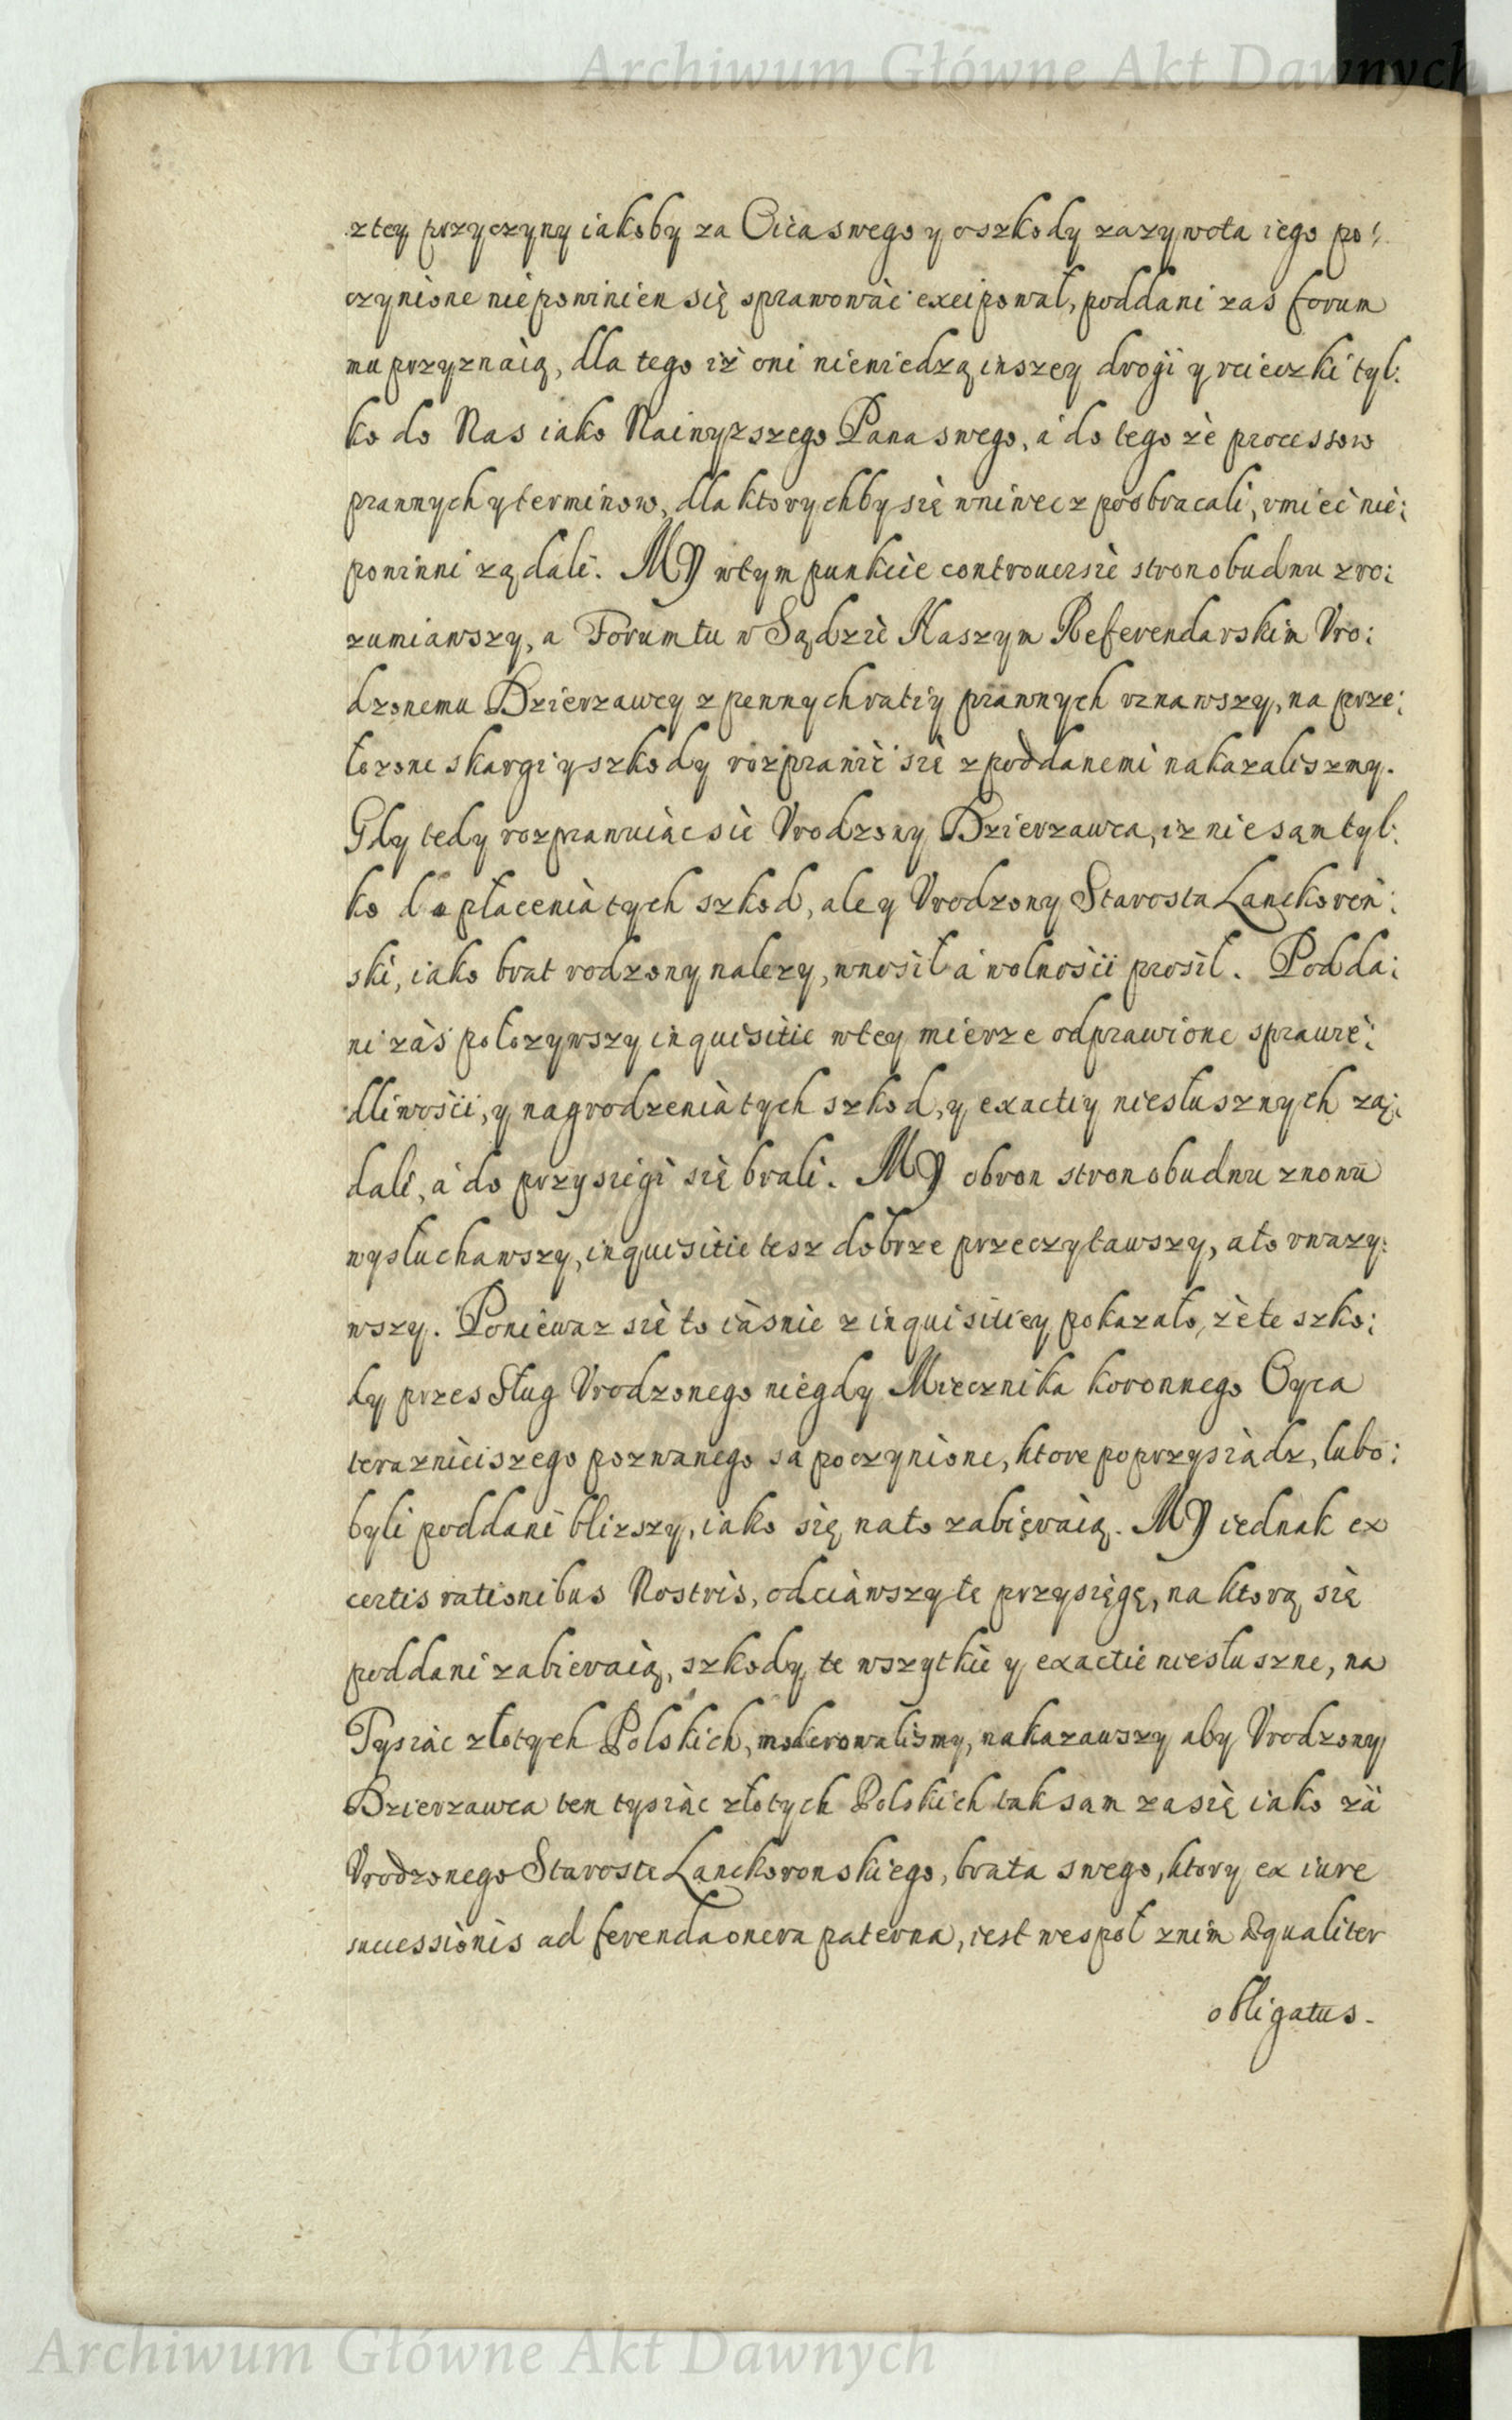 Archiwum Główne Akt Dawnych
z tey przyczyny iakoby za Oica swego y o szkody za zywota iego po:
czynione nie powinien się sprawować excipował, poddani zas forum
mu przyznaią, dla tego iż oni niewiedzą inszey drogi y vcieczki tyl:
ko do Nas iako Naiwyzszego Pana swego, a do tego że processow
prawnych y terminow, dla ktorychby się wniwecz poobracali, vmieć nie:
powinni ządali. MY wtym punkcie controuersie stron obudwu zro:
zumiawszy, a Forum tu w Sądzie Naszym Referendarskim Vro:
dzonemu Dzierzawcy z pewnych ratiy prawnych vznawszy, na prze:
łozone skargi y szkody rozprawić się z poddanemi nakazalismy.
Gdy tedy rozprawuiąc sie Vrodzony Dzierzawca, iz nie sam tyl:
ko do płacenia tych szkod, ale y Vrodzony Starosta Lanckoren:
ski, iako brat rodzony nalezy, wnosił a wolności prosił. Podda:
ni zas położywszy inquisitie w tey mierze odprawione sprawie:
dliwości, y nagrodzenia tych szkod, y exactiy niesłusznych zą:
dali, a do przysięgi się brali. MY obron stron obudwu znowu
wysłuchawszy, inquisitie tesz dobrze przeczytawszy, a to vwazy:
wszy. Poniewaz sie to iasnie z inquisitiey pokazało, że te szko:
dy przes Sług Vrodzonego niegdy Miecznika koronnego Oyca
teraznieiszego pozwanego sa poczynione, ktore poprzysiądz, lubo:
byli poddani blizszy, iako się na to zabieraią. MY iednak ex
certis rationibus Nostris, odciąwszy te przysięgę, na ktorą się
poddani zabieraią, szkody te wszytkie y exactie niesłuszne, na
Tysiąc złotych Polskich, moderowalismy, nakazawszy aby Vrodzony
Dzierzawca ten tysiąc złotych Polskich tak sam za się iako za
Vrodzonego Staroste Lanckoronskiego, brata swego, ktory ex iure
successionis ad ferenda onera paterna, iest wespoł z nim æqualiter
obligatus.
Archiwum Główne Akt Dawnych